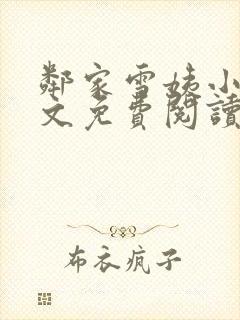 鄰家雪姨小
文免費閱讀
布衣疯子